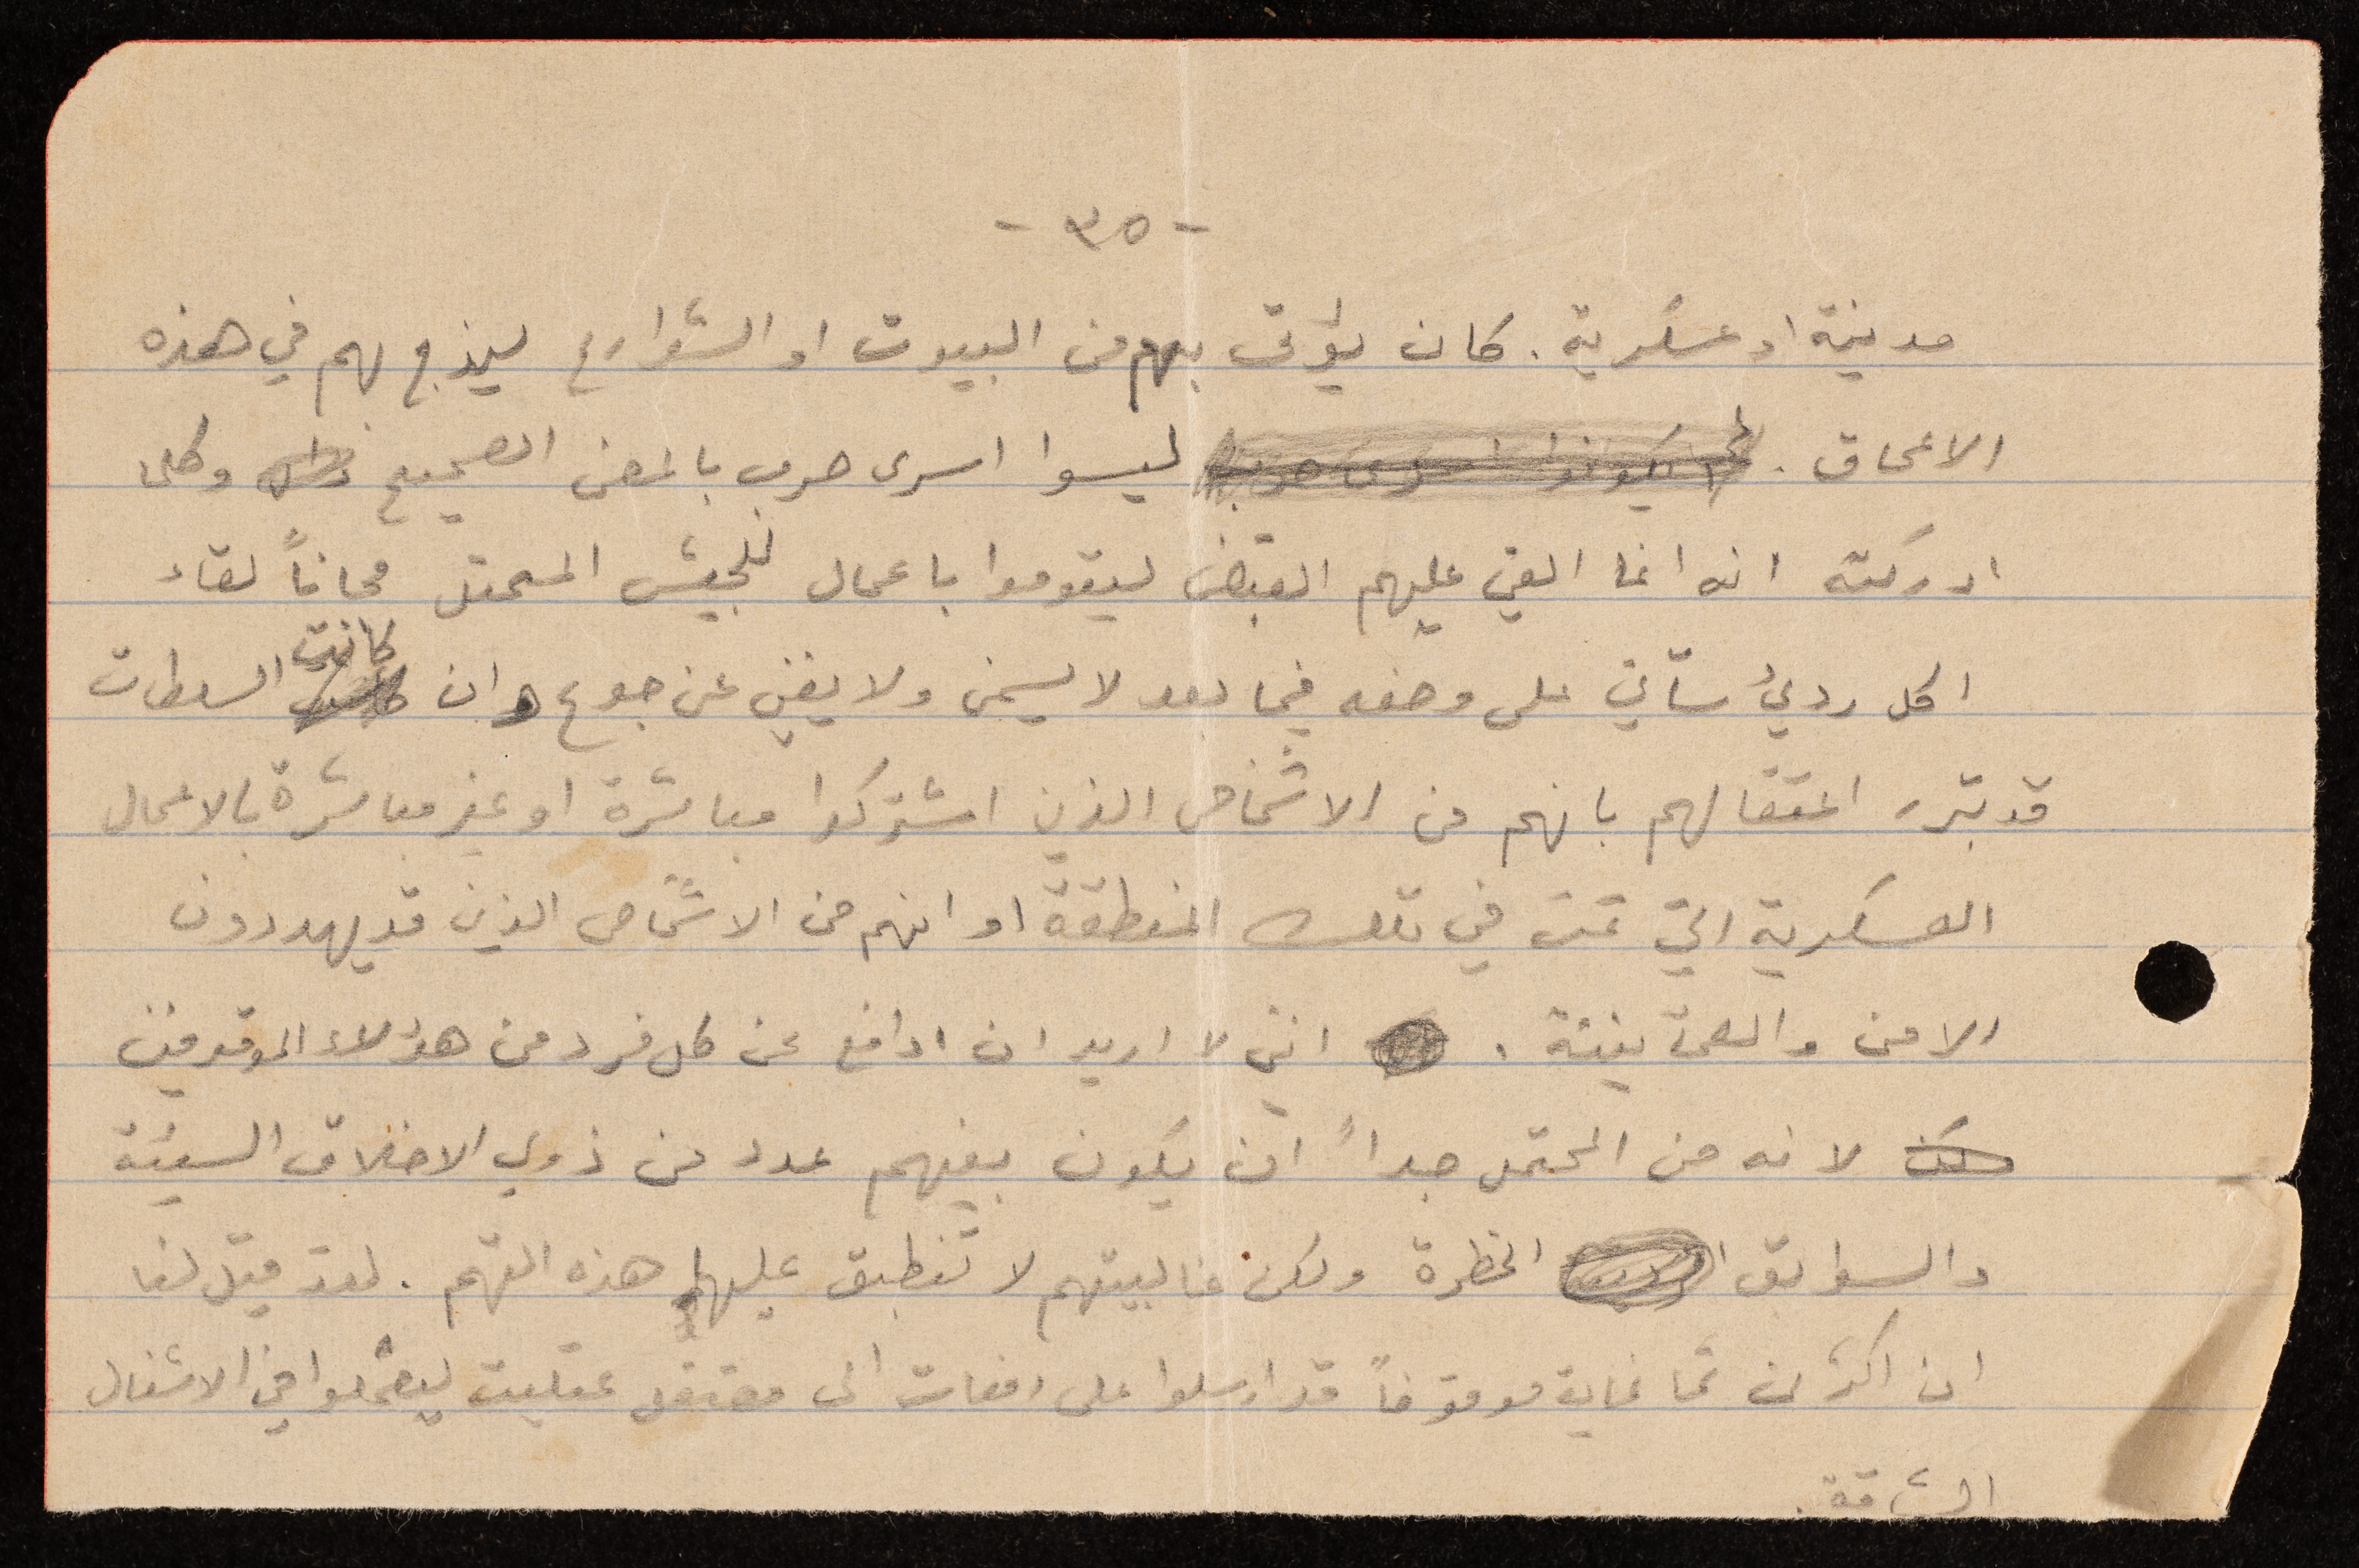 - ٣٥ -
مدنية او عسكرية. كان يؤتى بهم من البيوت او الشوارع ليزج بهم في هذه
الاعماق. لم يكونوا اسرى حرب ليسوا اسرى حرب بالمعنى الصحيح وكلما
ادركته انه انما القي عليهم القبض ليقوموا باعمال للجيش المحتل مجاناً لقاء
اكل رديء سآتي على وصفه فيما بعد لا يسمن ولا يغني عن جوع وان كانت السلطات
قد تبرر اعتقالهم بانهم من الاشخاص الذين اشتركوا مباشرة او غير مباشرة بالاعمال
العسكرية التي تمت في تلك المنطقة او انهم من الاشخاص الذين قد يهددون
الامن والطمأنينة. انني لا اريد ان ادافع عن كل فرد من هؤلاء الموقوفين
لكن لانه من المحتمل جداً ان يكون بينهم عدد من ذوي الاخلاق السيئة
والسوابق الخطرة ولكن غالبيتهم لا تنطبق عليها هذه التهم. لقد قيل لنا
ان اكثر من ثمانماية موقوفاً قد ارسلوا على دفعات الى معتقل عتليت ليعملوا في الاشغال
الشاقة.